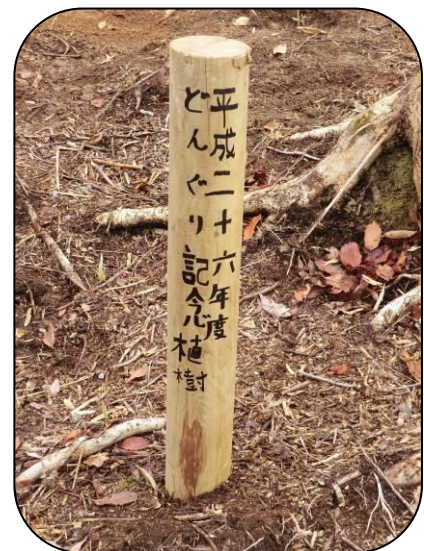 平成二十六年度
どんぐり記念植樹